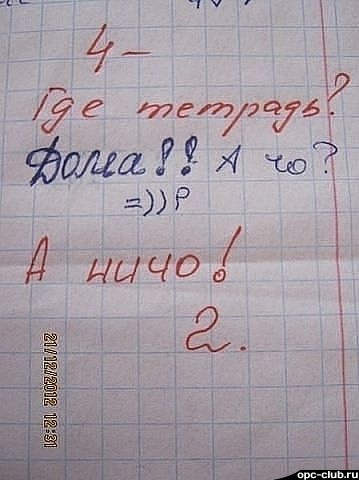 4-
Где тетрадь?
Дома!! А чо?
=))Р
А ничо!
2.
21/12/2012 12:31
opc-club.ru